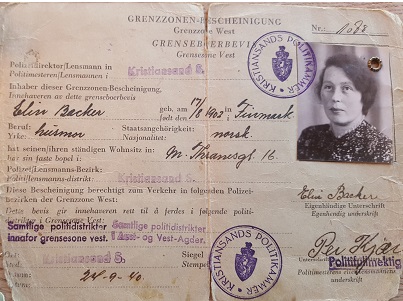 GRENZZONEN-BESCHEINIGUNG
Grenzzone West
GRENSEBOERBEVIS
Grensezone Vest
Nr.: 1538
Polizeidirektor/Lensmann in
Politimesteren/Lensmannen i
Kristiansand S.
Inhaber dieser Grenzzonen-Bescheinigung,
Innehaveren av dette grenseboerbevis
Elin Becker
geb. am
født den
1902
in
i
Finmark
Beruf:
Yrke:
husmor
Staatsangehörigkeit:
Nasjonalitet:
norsk
hat seinen/ihren ständigen Wohnsitz in:
har sin faste bopel i:
M. Thranesgt. 16.
Polizei/Lensmanns-Bezirk:
Politi/lensmanns-distrikt:
Kristiansand S.
Diese Bescheinigung berechtigt zum Verkehr in folgenden Polizei-
bezirken der Grenzzone West:
Dette bevis gir innehaveren rett til å ferdes i følgende politi-
distrikter i Grensesone Vest:
Samtlige politidistrikter
innafor grensesone vest.
Samtlige politidistrikter
i Aust- og Vest-Agder.
Kristiansand S.
24-9-40.
Siegel
Stempel
KRISTIANSANDS POLITIKAMMER
KRISTIANSANDS POLITIKAMMER
Elin Becker
Eigenhändige Unterschrift
Egenhendig underskrift
Per Kjær
Politifullmektig
underskrift